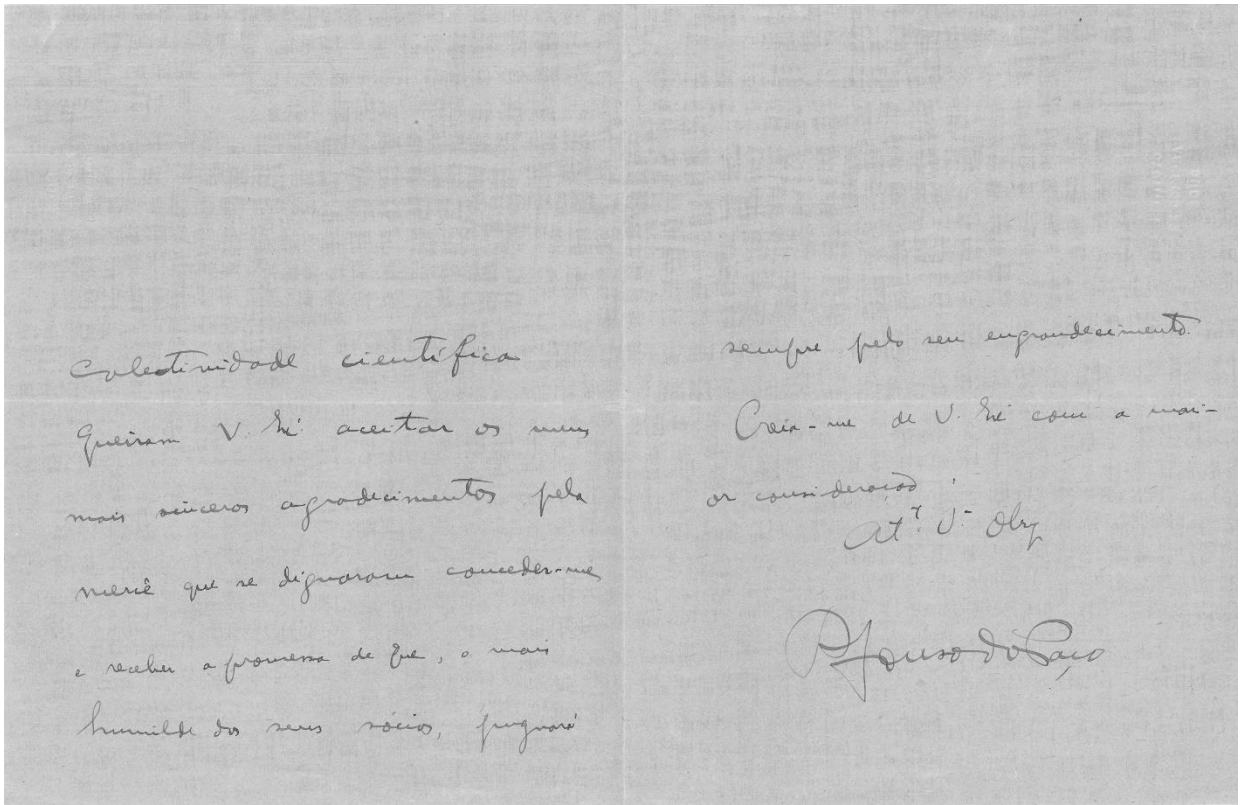 colectividade científica
Queiram V. Exª aceitar os meus
mais sinceros agradecimentos pela
mercê que se dignaram conceder-me
e receber a promessa de que, o mais
humilde dos seus sócios, pugnará
sempre pelo seu engrandecimento.
Creia-me de V. Exª com a mai-
or consideração
Att.º V.or Obrg
Afonso do Paço